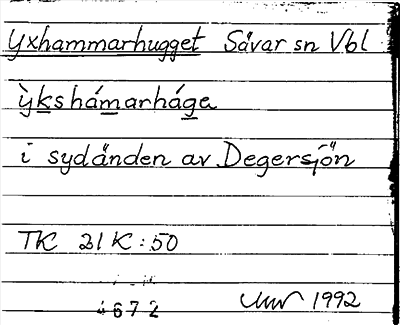 Yxhammarhugget Sävar sn Vbl
ỳkshámarhága
i sydänden av Degersjön
TK 21K:50
4672
1992